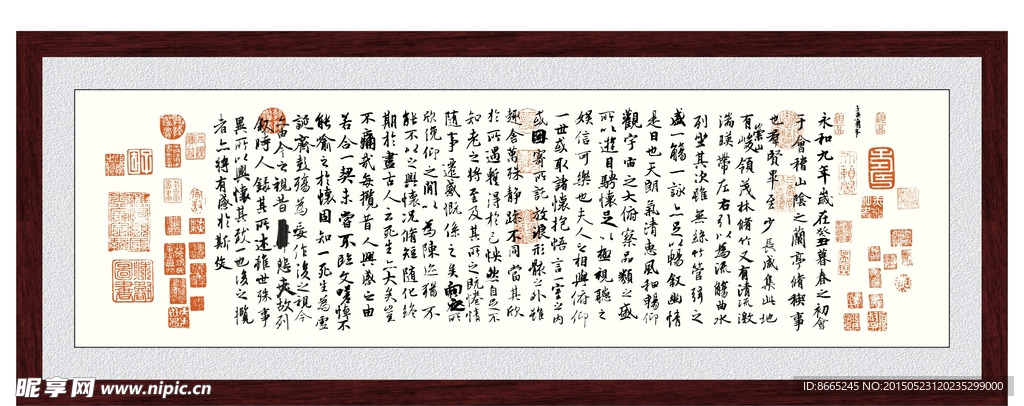 永和九年歲在癸丑暮春之初會
于會稽山陰之蘭亭脩稧事
也羣賢畢至少長咸集此地
有崇山峻領茂林脩竹又有清流激
湍暎帶左右引以為流觴曲水
列坐其次雖無絲竹管弦之
盛一觴一詠亦足以暢敘幽情
是日也天朗氣清惠風和暢仰
觀宇宙之大俯察品類之盛
所以遊目騁懷足以極視聽之
娛信可樂也夫人之相與俯仰
一世或取諸懷抱悟言一室之內
或因寄所託放浪形骸之外雖
趣舍萬殊靜躁不同當其欣
於所遇蹔得於己怏然自足不
知老之將至及其所之既惓情
隨事遷感慨係之矣向之所
欣俛仰之閒以為陳迹猶不
能不以之興懷況脩短隨化終
期於盡古人云死生亦大矣豈
不痛哉每攬昔人興感之由
若合一契未嘗不臨文嗟悼不
能喻之於懷固知一死生為虛
誕齊彭殤為妄作後之視今
亦由今之視昔悲夫故列
敘時人錄其所述雖世殊事
異所以興懷其致一也後之攬
者亦將有感於斯文
昵享网 www.nipic.cn
ID:8665245 NO:20150523120235299000